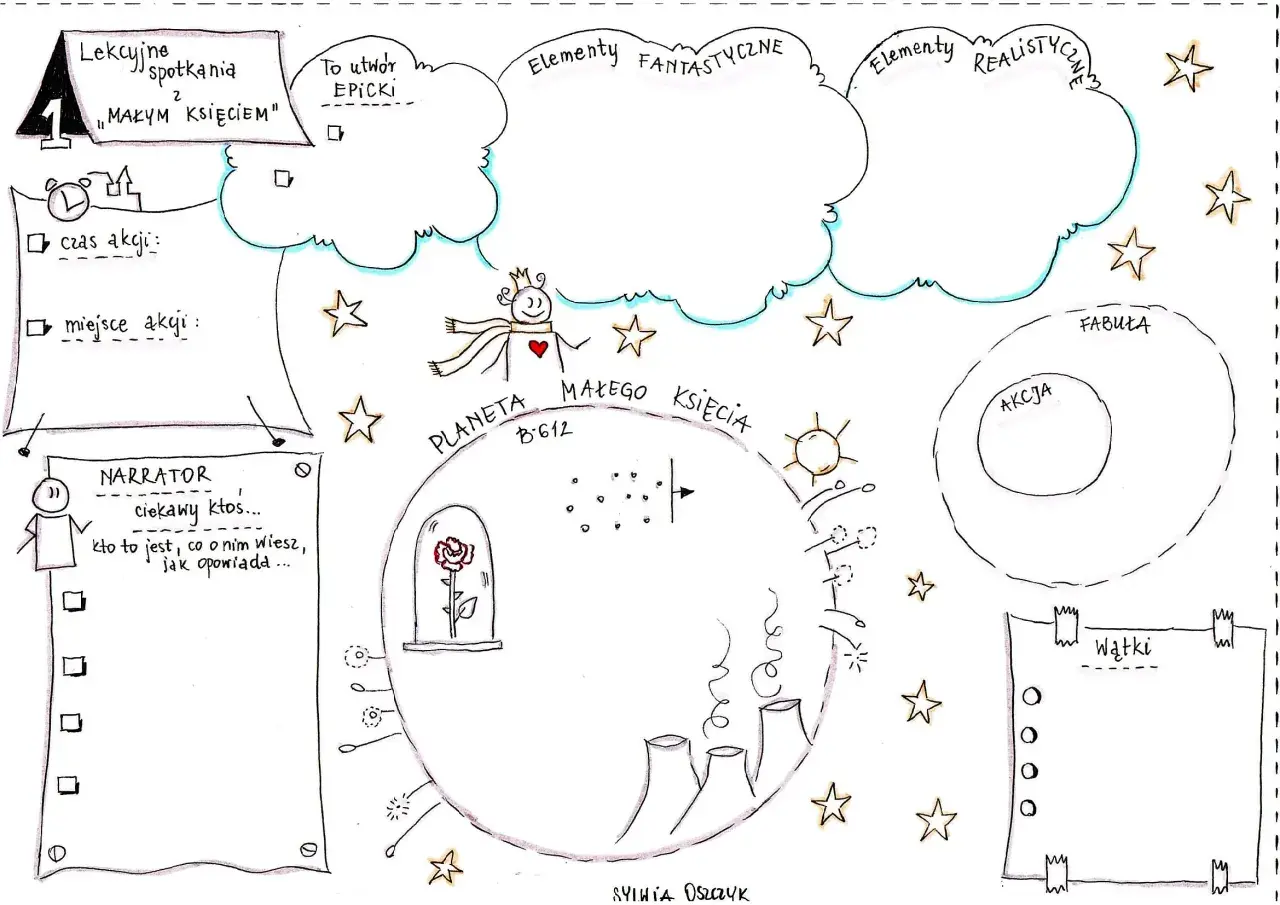 1
Lekcyjne
spotkania
z
„MAŁYM KSIĘCIEM"
To utwór
EPICKI
Elementy FANTASTYCZNE
Elementy REALISTYCZNE
czas akcji:
miejsce akcji:
NARRATOR
ciekawy ktoś...
kto to jest, co o nim wiesz,
jak opowiada ...
PLANETA MAŁEGO KSIĘCIA
B-612
FABUŁA
AKCJA
Wątki
SYLWIA OSZCZYK